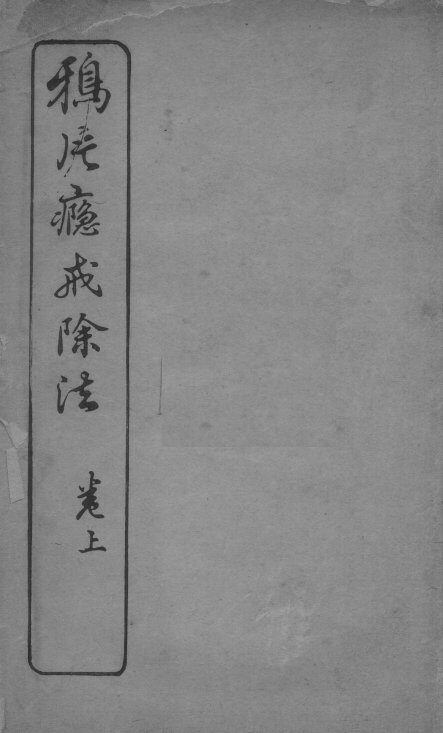 鴉片癮戒除法
卷上